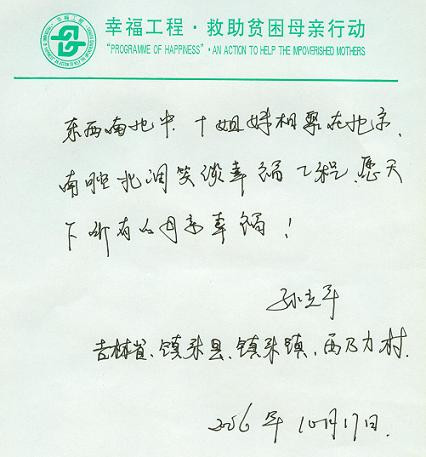 幸福工程·救助贫困母亲行动
"PROGRAMME OF HAPPINESS"·AN ACTION TO HELP THE IMPOVERISHED MOTHERS
东西南北中.十姐妹相聚在北京.
南腔北调笑谈幸福工程.愿天
下所有的母亲幸福!
孙立平
吉林省、镇赉县、镇赉镇、西乃力村.
2006年10月17日.